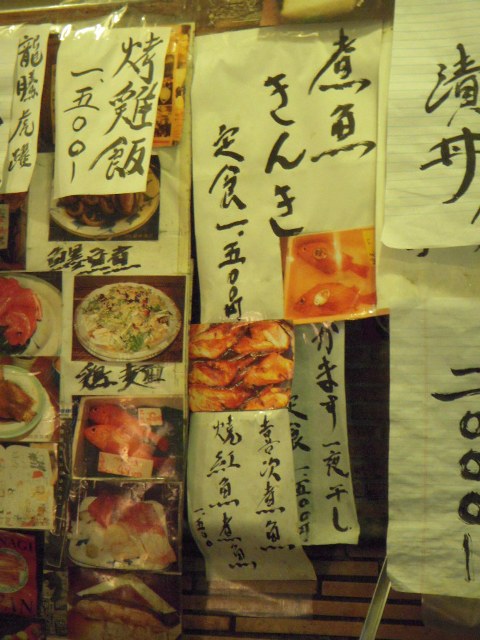 龍騰虎躍
烤雞飯
一、五〇〇ー
煮魚
きんき
定食一、五〇〇円
漬丼
二〇〇〇ー
鶏麺
かます一夜干し
定食一、五〇〇円
喜次煮魚
焼紅魚煮魚
一、五〇〇